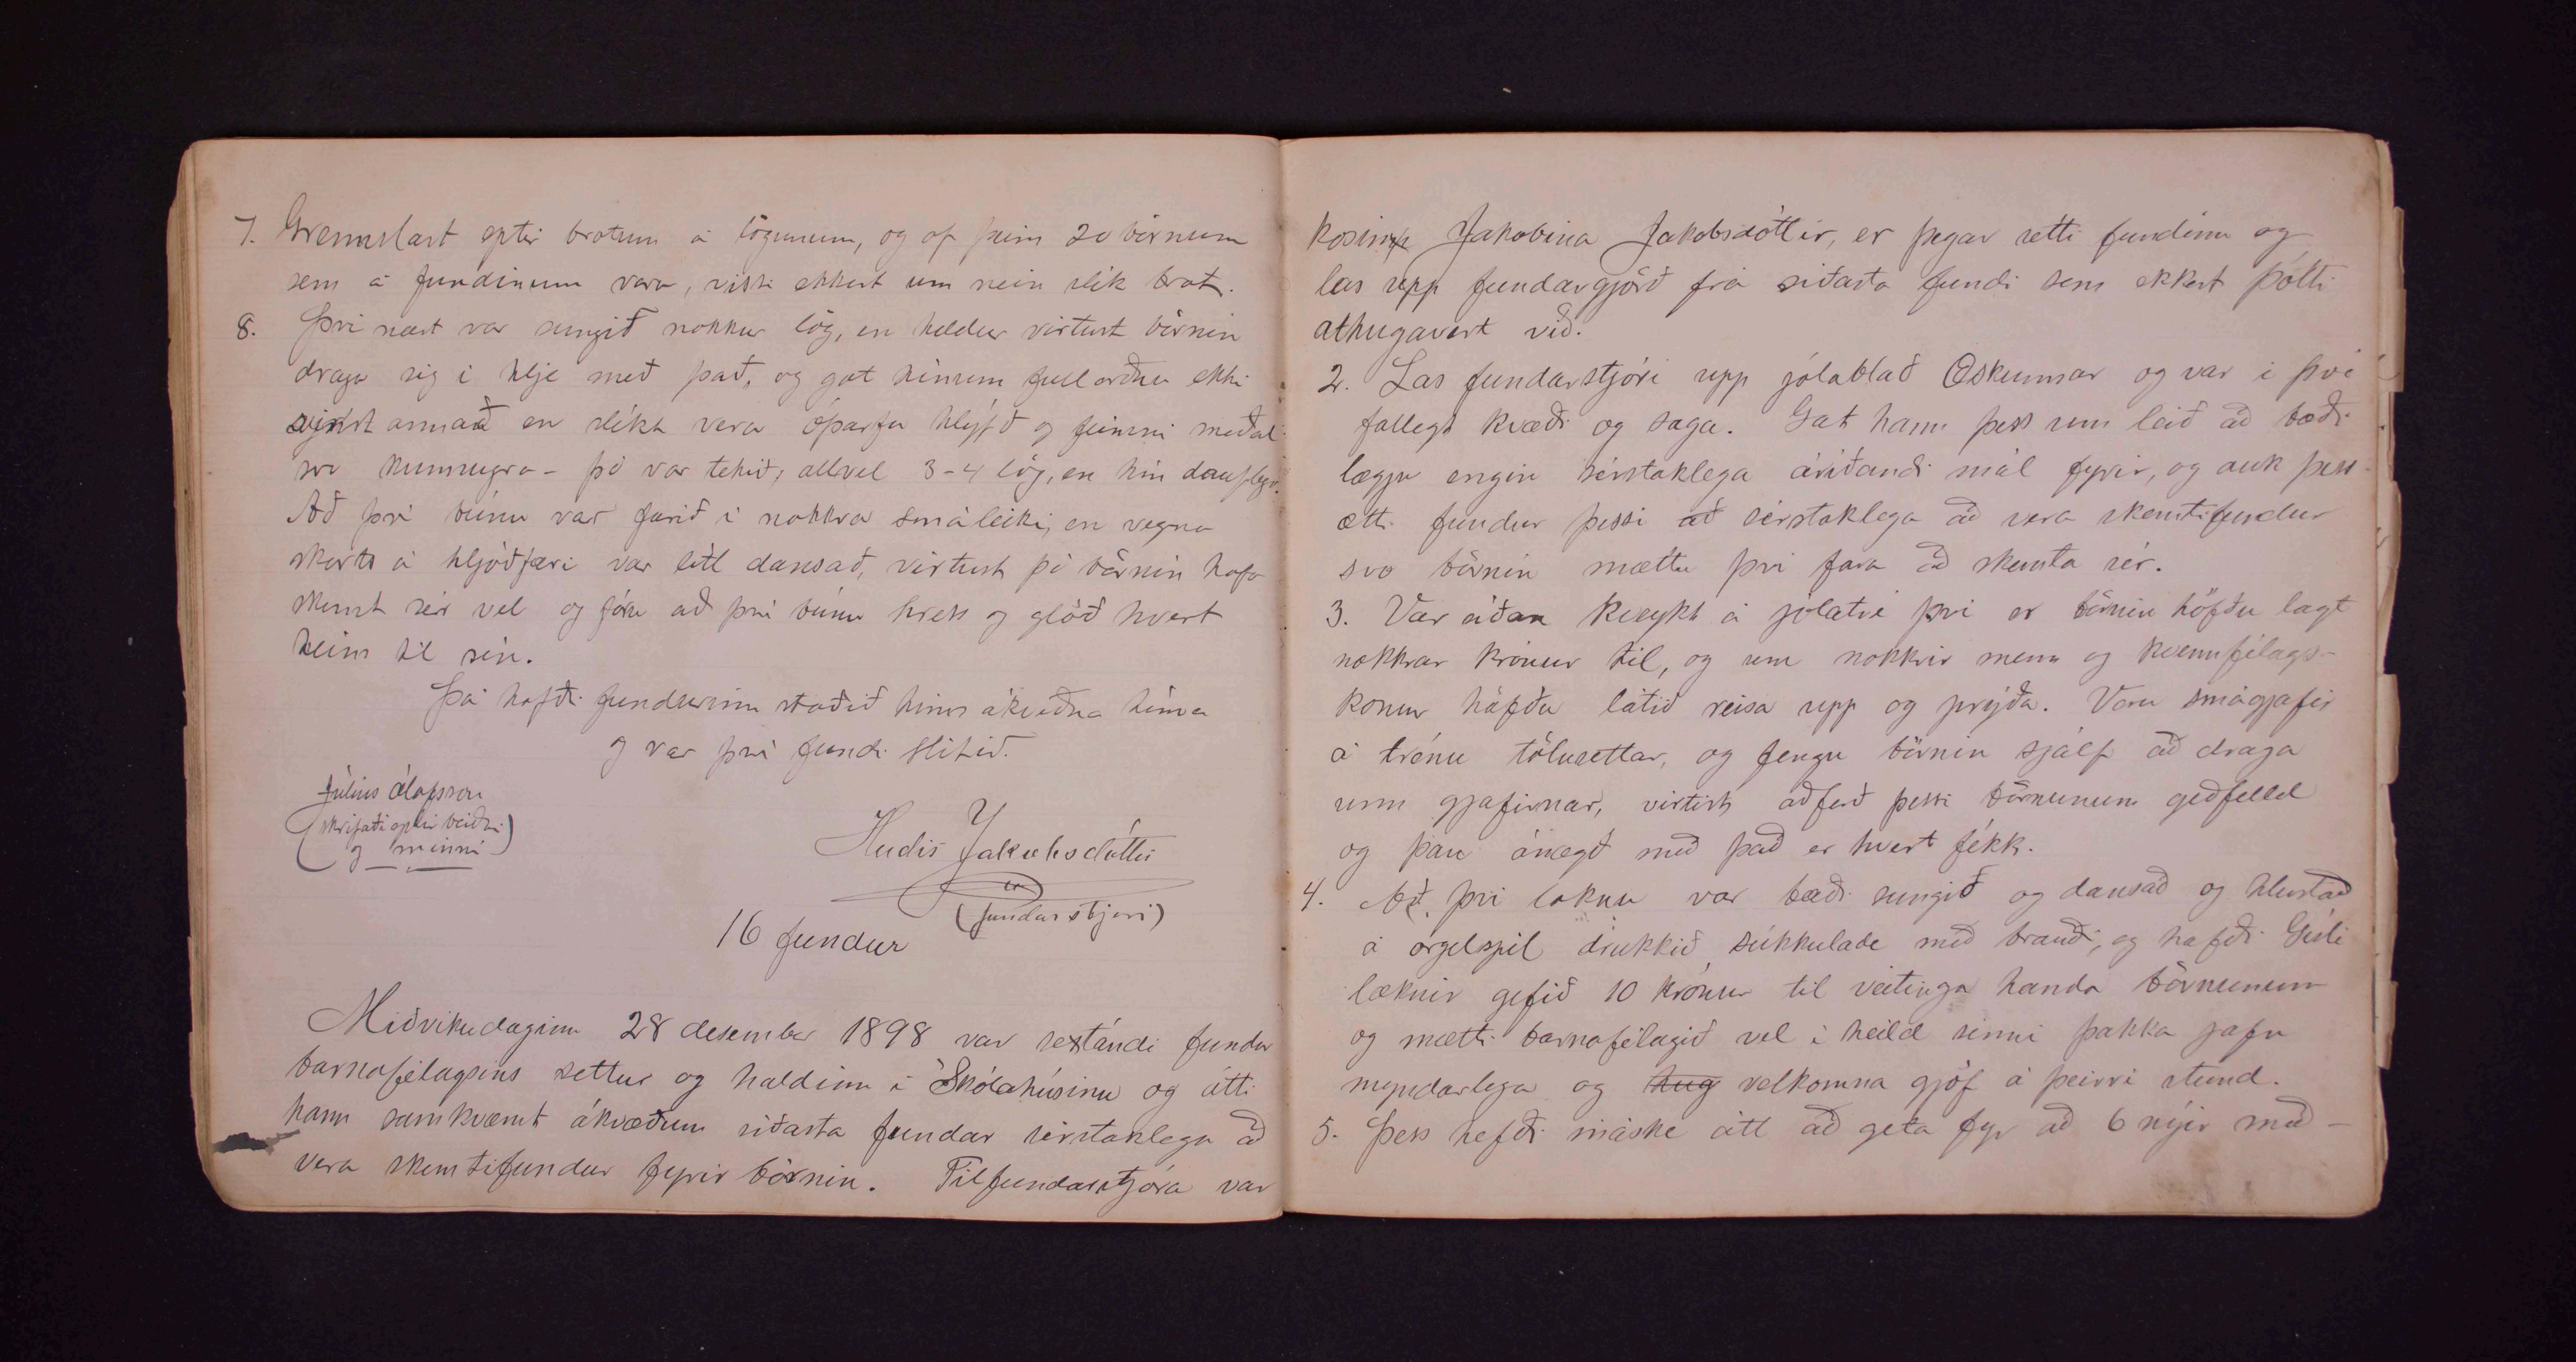 7. Grennslast eptir brotum á lögunum, og af þeim 20 börnum
sem á fundinum voru, vissi ekkert um nein slík brot.
8. Því næst var sungið nokkur lög, en heldur virtust börnin
draga sig í hlje með það, og gat hinum fullorðnu ekki
sýnst annað en slíkt vera óþarfa hlýfð og feimni meðal
svo kunnugra - þó var tekið allvel 3-4 lög, en hin dauflegr.
Að því búnu var farið í nokkra smáleiki, en vegna
skorts á hljóðfæri var lítl dansað, virtust þó börnin hafa
skemt sér vel og fóru að því búnu hress og glöð hvert
heim til sín.
Þá hafði fundurinn staðið hinn ákveðna tíma
og var því fundi slitið.
Júlíus Ólafsson
(skrifaði eptir beiðni)
og minni
Herdís Jakobsdóttir
(fundarstjóri)
16 fundur
Miðvikudaginn 28 desember 1898 var sextándi fundur
barnafélagsins settur og haldinn í Skólahúsinu og átti
hann samkvæmt ákvæðum síðasta fundar sérstaklega að
vera skemtifundur fyrir börnin. Til fundarstjóra var
kosin Jakobína Jakobsdóttir, er þegar setti fundinn og
las upp fundargjörð frá síðasta fundi sem ekkert þótti
athugavert við.
2. Las fundarstjóri upp jólablað Öskunnar og var í því
fallegt kvæði og saga. Gat hann þess um leið að bæði
lægju engin sérstaklega áríðandi mál fyrir, og auk þess
ætti fundur þessi að sérstaklega að vera skemtifundur
svo börnin mættu því fara að skemta sér.
3. Var síðan kveykt á jólatré því er börnin höfðu lagt
nokkrar krónur til, og sem nokkrir menn og kvennfélags-
konur höfðu látið reisa upp og prýða. Voru smágjafir
á trénu tölusettar, og fengu börnin sjálf að draga
um gjafirnar, virtist aðferð þessi börnunum geðfelld
og þau ánægð með það er hvert fékk.
4. Að því loknu var bæði sungið og dansað og hlustað
á orgelspil drukkið súkkulade með brauði, og hafði Gísli
læknir gefið 10 krónur til veitinga handa börnunum
og mætti barnafélagið vel í heild sinni þakka jafn
myndarlega og hug velkomna gjöf á þeirri stund.
5. Þess hefði máske átt að geta fyr að 6 nýir með-